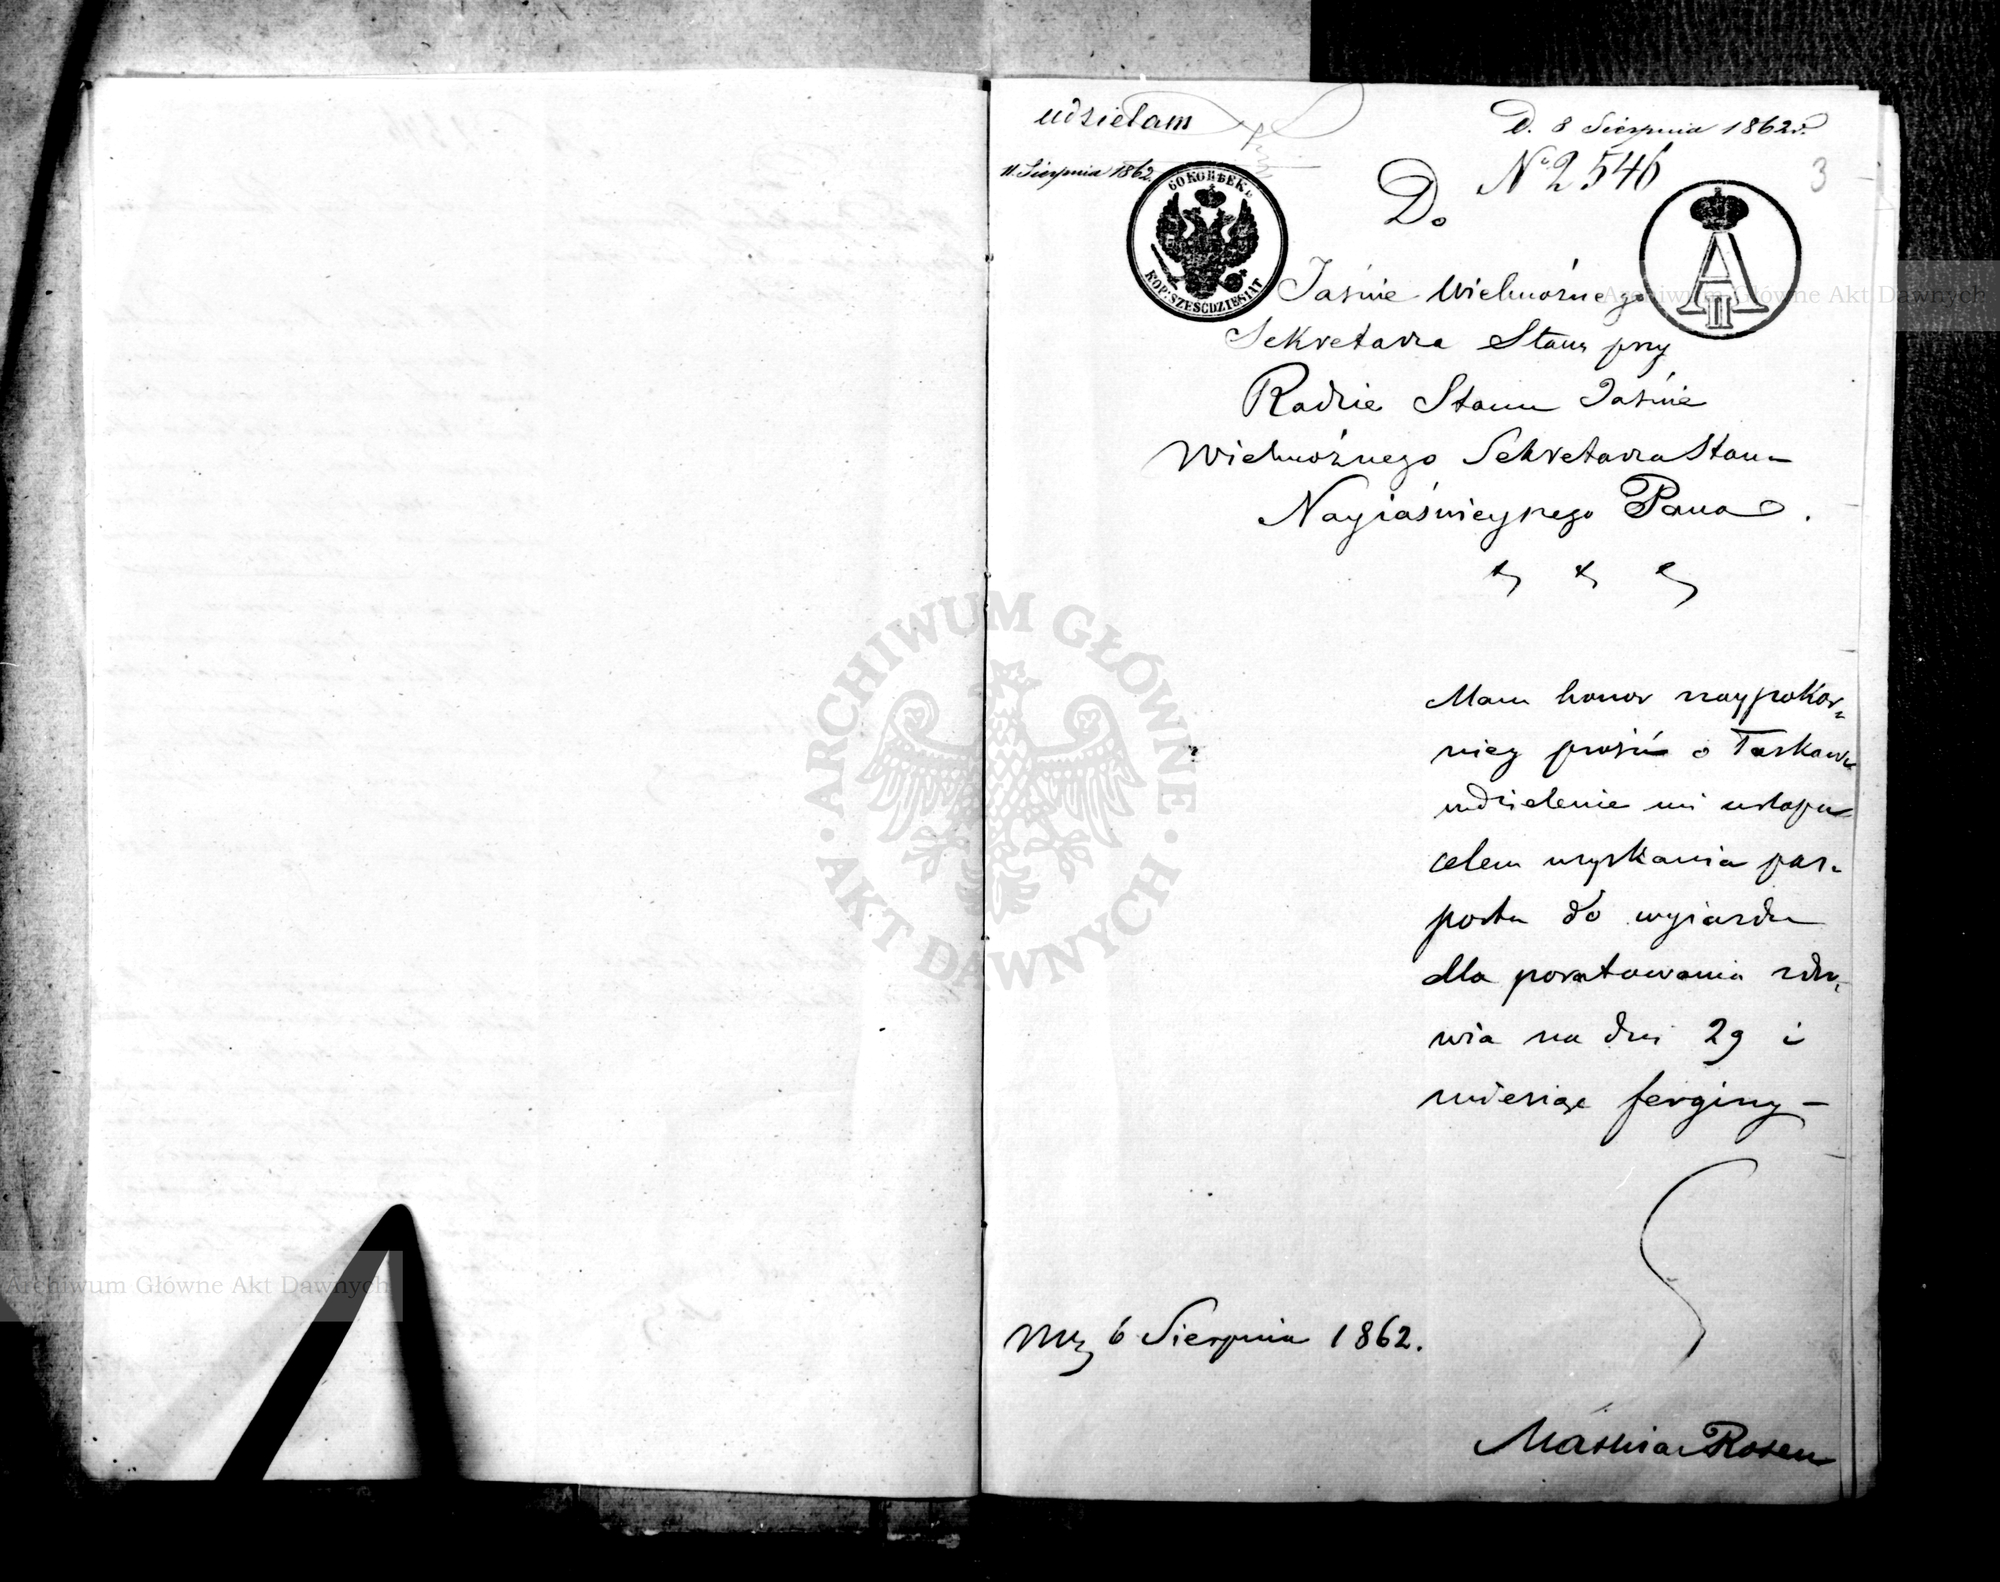 udzielam
11 Sierpnia 1862.
D. 8 Sierpnia 1862 r.
No 2546
3
60 КОПѢЕКЪ
KOP: SZESĆDZIESIĄT
A II
Do
Jaśnie Wielmożnego
Sekretarza Stanu przy
Radzie Stanu Jaśnie
Wielmożnego Sekretarza Stanu
Nayiaśnieyszego Pana.
Mam honor naypokor=
niey prosić o łaskawe
udzielenie mi urlopu
celem uzyskania pas=
portu do wyiazdu
dla poratowania zdro=
wia na dni 29 i
miesiąc feryiny –
6 Sierpnia 1862.
Mathias Rosen
ARCHIWUM GŁÓWNE
AKT DAWNYCH
Archiwum Główne Akt Dawnych
Archiwum Główne Akt Dawnych